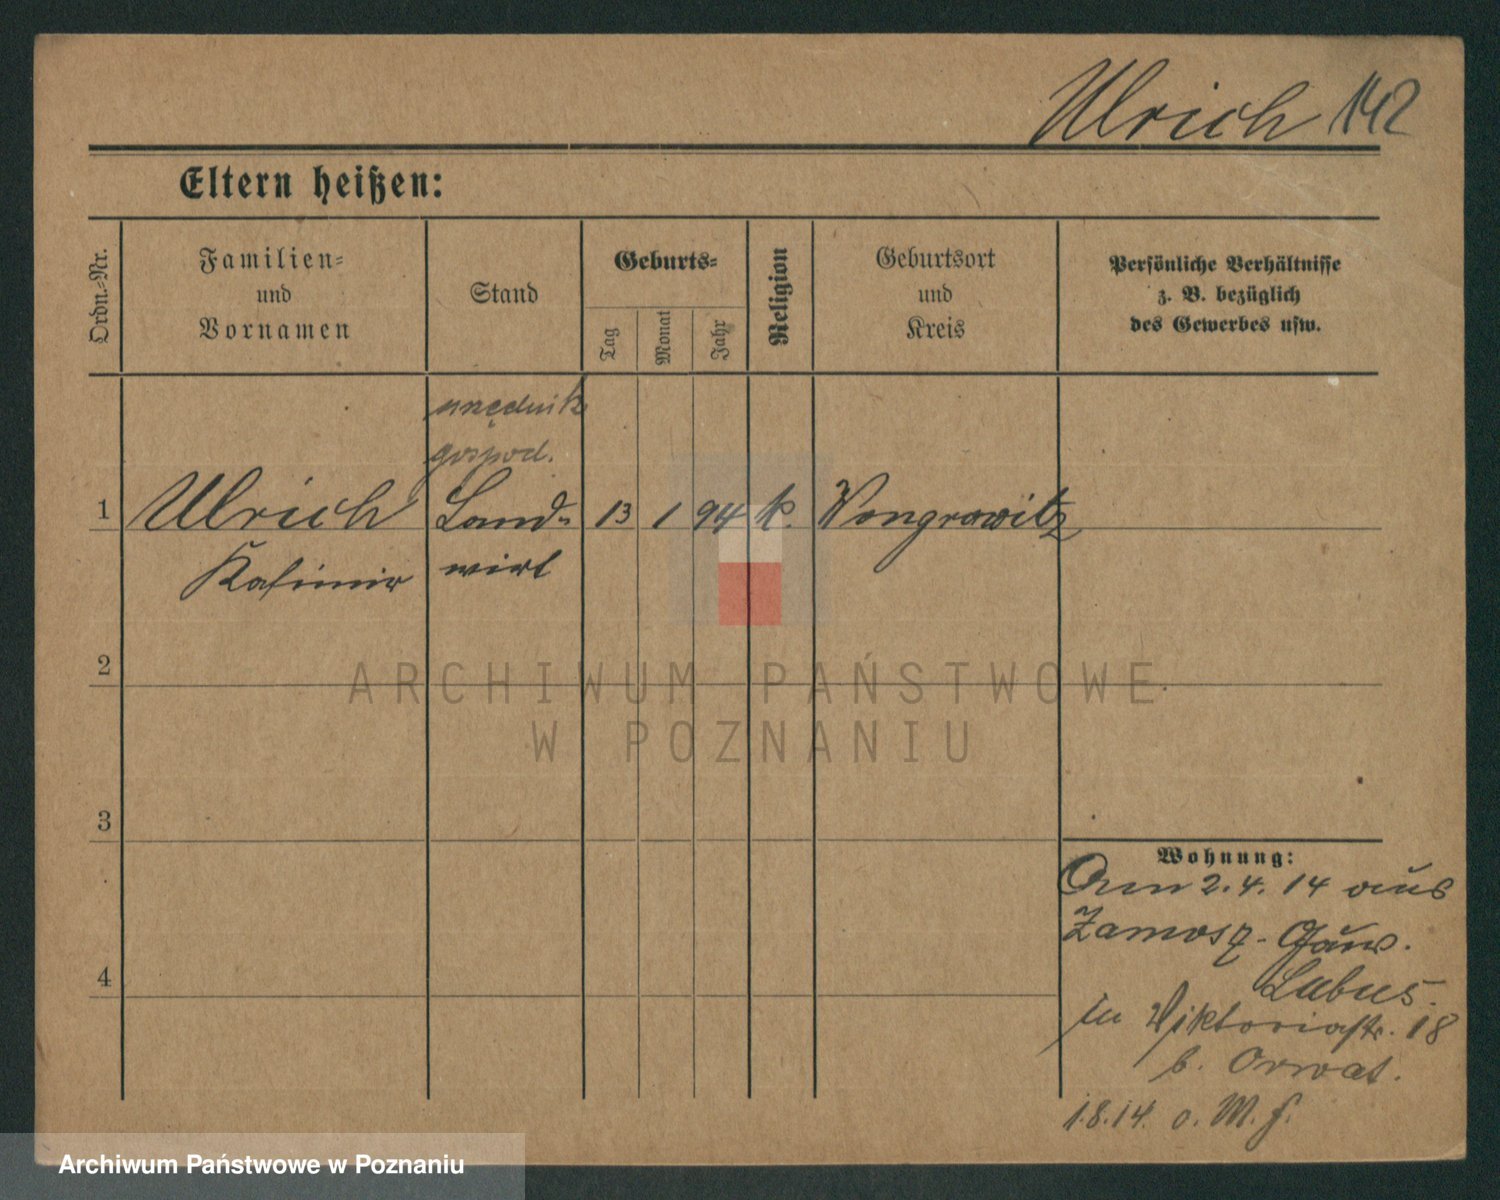 Ulrich 142
Eltern heißen:
Ordn.-Nr.
Familien-
und
Vornamen
Stand
Geburts-
Tag
Monat
Jahr
Religion
Geburtsort
und
Kreis
Persönliche Verhältnisse
z. B. bezüglich
des Gewerbes usw.
urzędnik
gospod.
1 Ulrich Land- 13 1 94 k. Wongrowitz
Kasimir wirt
2
3
4
Wohnung:
Am 2.4.14 aus
Zamosz
in Viktoriastr. 18
b. Orwat.
1.8.14. o.
ARCHIWUM PAŃSTWOWE
W POZNANIU
Archiwum Państwowe w Poznaniu